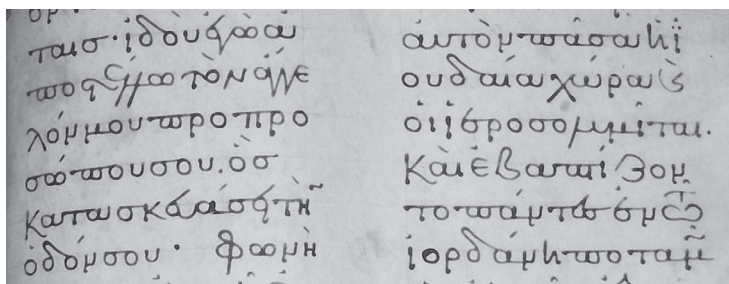 ταισ· ἰδοὺ ἐγὼ ἀ
ποστέλλω τὸν ἄγγε
λόν μου πρὸ προ
σώπου σου· ὃσ
κατασκευάσει τὴν
ὁδόν σου· φωνὴ
αὐτὸν πᾶσα ἡ ἰ
ουδαία χώρα ϗ
οἱ ἱεροσολυμίται·
Καὶ ἐβαπτίζον
το πάντεσ ἐν τῶ
ἰορδάνη ποταμῶ